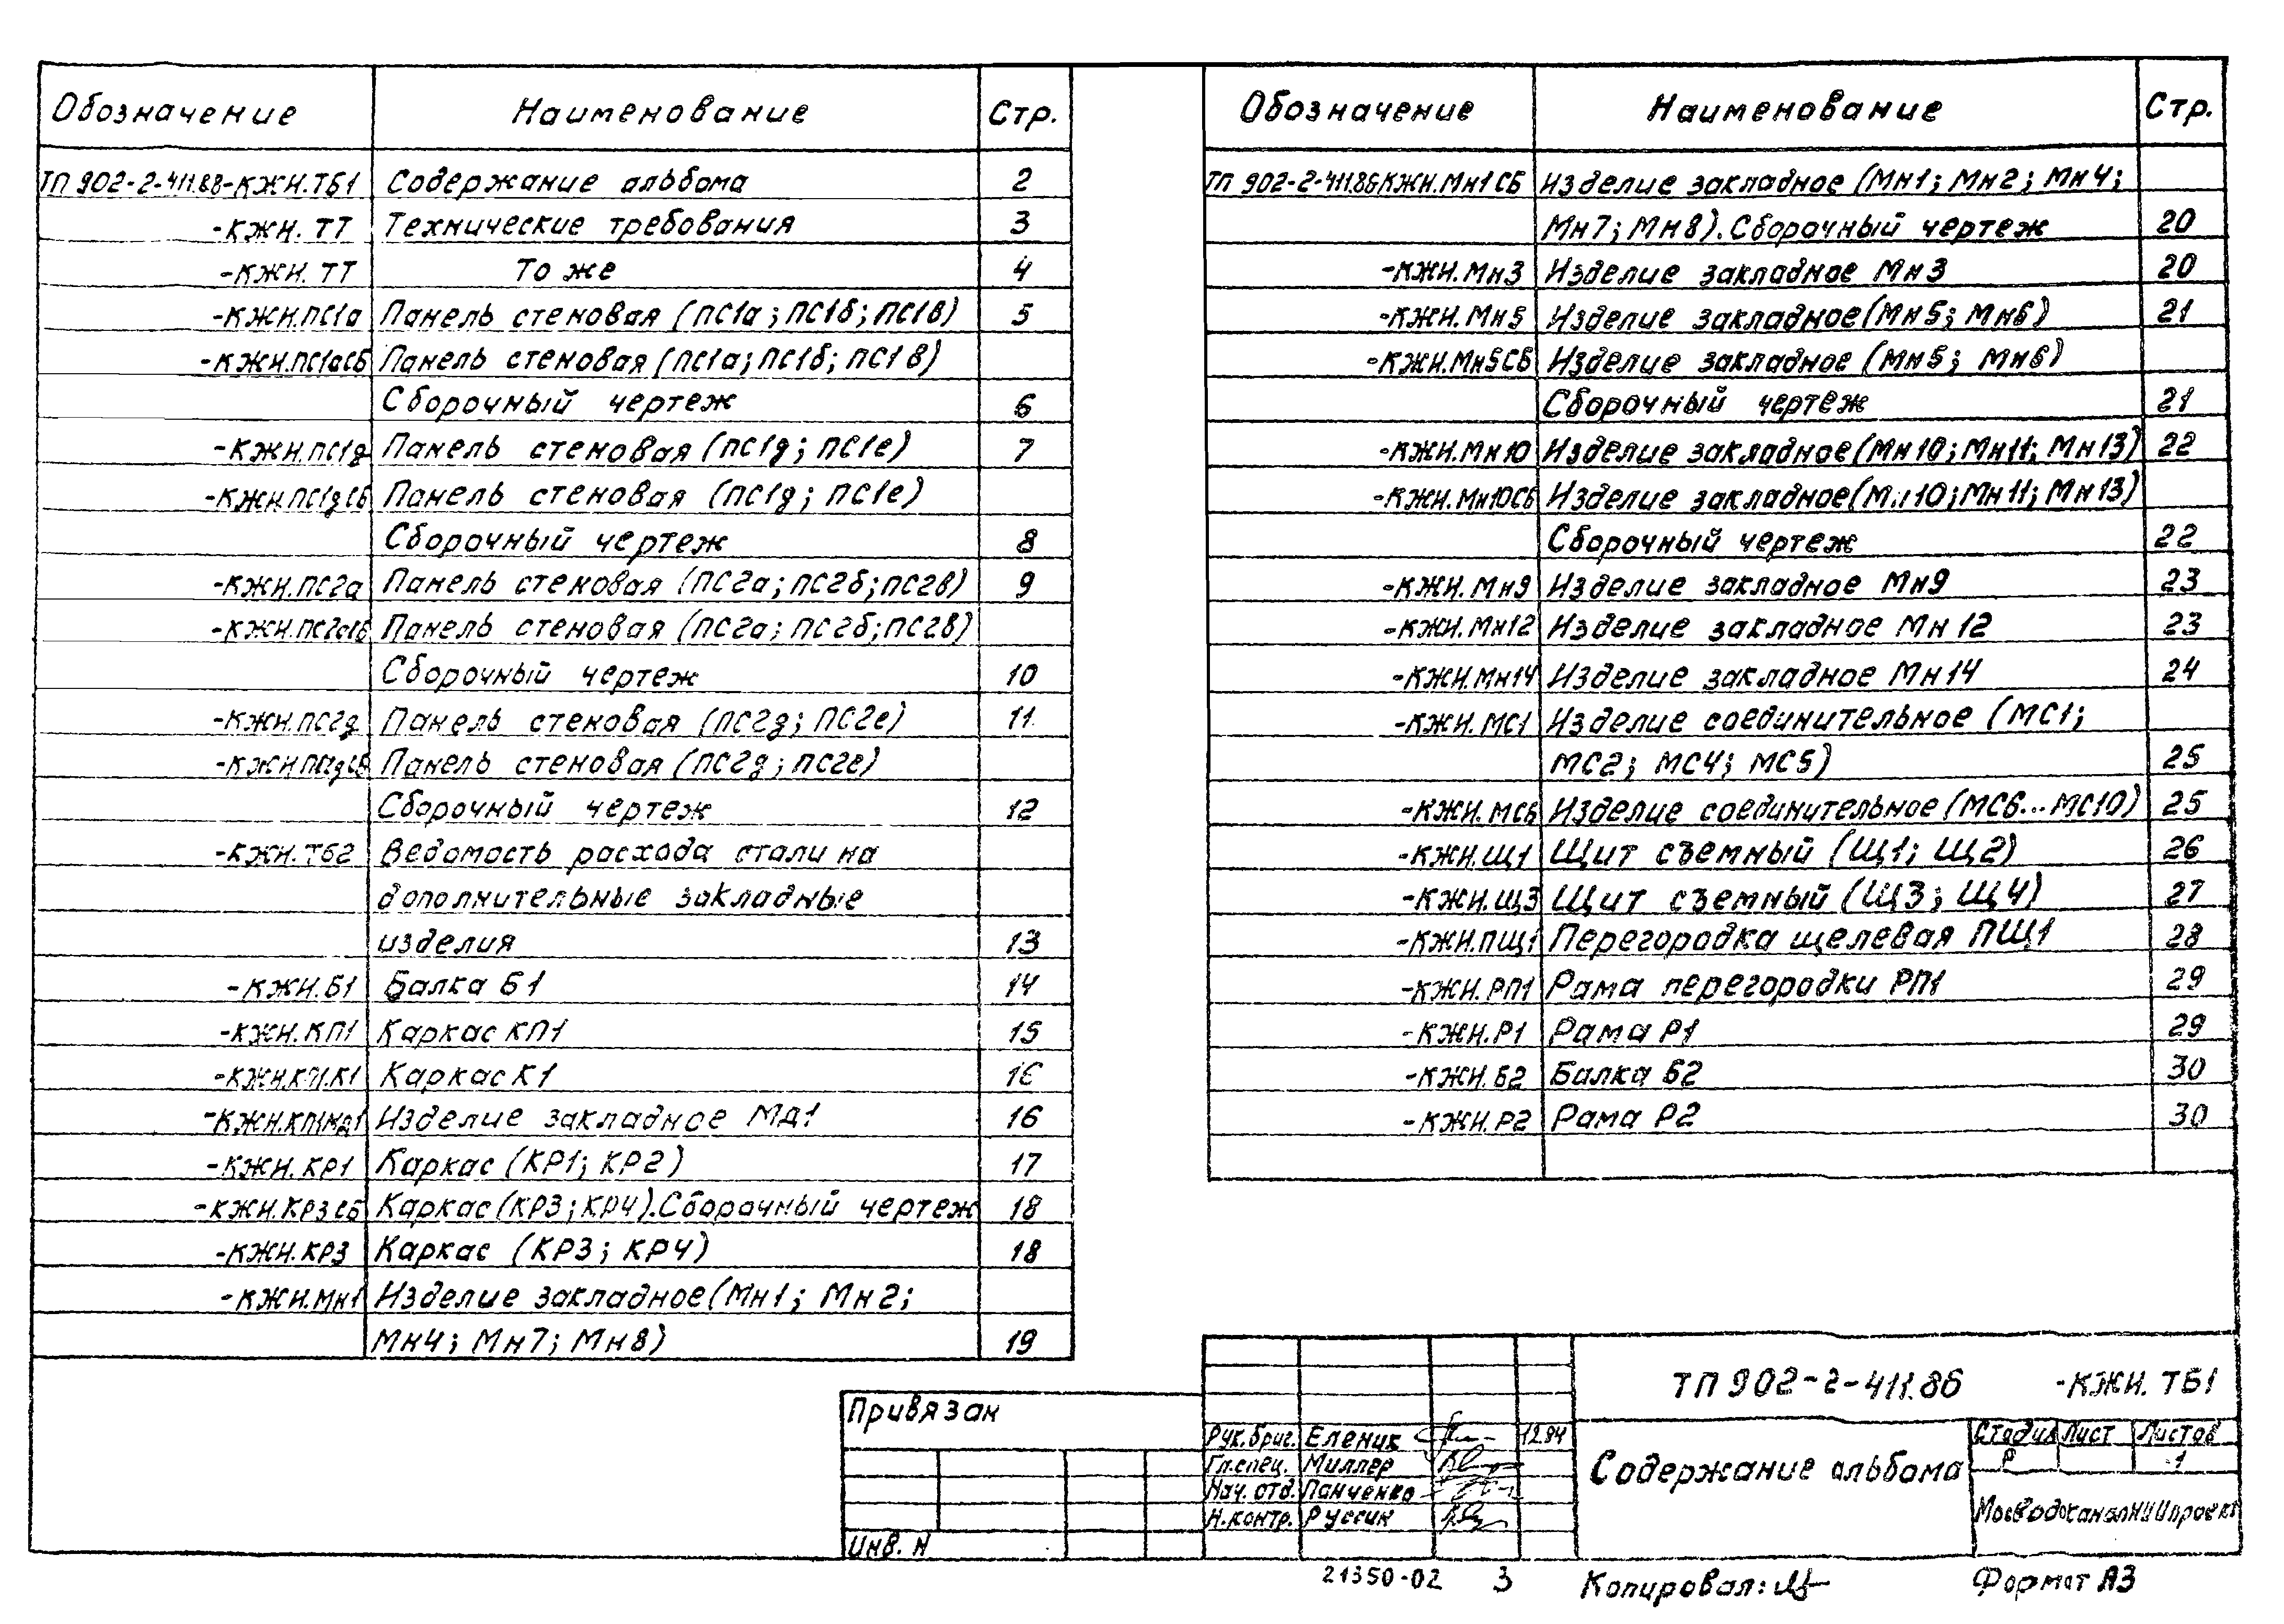 Обозначение Наименование Стр.
ТП 902-2-411.86-КЖИ.ТБ1 Содержание альбома 2
-КЖИ. ТТ Технические требования 3
-КЖИ. ТТ То же 4
-КЖИ.ПС1а Панель стеновая (ПС1а; ПС1б; ПС1в) 5
-КЖИ.ПС1аСБ Панель стеновая (ПС1а; ПС1б; ПС1в)
Сборочный чертеж 6
-КЖИ.ПС1д Панель стеновая (ПС1д; ПС1е) 7
-КЖИ.ПС1дСБ Панель стеновая (ПС1д; ПС1е)
Сборочный чертеж 8
-КЖИ.ПС2а Панель стеновая (ПС2а; ПС2б; ПС2в) 9
-КЖИ.ПС2аСБ Панель стеновая (ПС2а; ПС2б; ПС2в)
Сборочный чертеж 10
-КЖИ.ПС2д Панель стеновая (ПС2д; ПС2е) 11
-КЖИ.ПС2дСБ Панель стеновая (ПС2д; ПС2е)
Сборочный чертеж 12
-КЖИ.ТБ2 Ведомость расхода стали на
дополнительные закладные
изделия 13
-КЖИ.Б1 Балка Б1 14
-КЖИ.КП1 Каркас КП1 15
-КЖИ.КП1.К1 Каркас К1 16
-КЖИ.КП1МД1 Изделие закладное МД1 16
-КЖИ.КР1 Каркас (КР1; КР2) 17
-КЖИ.КР3СБ Каркас (КР3; КР4). Сборочный чертеж 18
-КЖИ.КР3 Каркас (КР3; КР4) 18
-КЖИ.Мн1 Изделие закладное (Мн1; Мн2;
Мн4; Мн7; Мн8) 19
Обозначение Наименование Стр.
ТП 902-2-411.86 КЖИ.Мн1СБ Изделие закладное (Мн1; Мн2; Мн4;
Мн7; Мн8). Сборочный чертеж 20
-КЖИ.Мн3 Изделие закладное Мн3 20
-КЖИ.Мн5 Изделие закладное (Мн5; Мн6) 21
-КЖИ.Мн5СБ Изделие закладное (Мн5; Мн6)
Сборочный чертеж 21
-КЖИ.Мн10 Изделие закладное (Мн10; Мн11; Мн13) 22
-КЖИ.Мн10СБ Изделие закладное (Мн10; Мн11; Мн13)
Сборочный чертеж 22
-КЖИ.Мн9 Изделие закладное Мн9 23
-КЖИ.Мн12 Изделие закладное Мн12 23
-КЖИ.Мн14 Изделие закладное Мн14 24
-КЖИ.МС1 Изделие соединительное (МС1;
МС2; МС4; МС5) 25
-КЖИ.МС6 Изделие соединительное (МС6...МС10) 25
-КЖИ.Щ1 Щит съемный (Щ1; Щ2) 26
-КЖИ.Щ3 Щит съемный (Щ3; Щ4) 27
-КЖИ.ПЩ1 Перегородка щелевая ПЩ1 28
-КЖИ.РП1 Рама перегородки РП1 29
-КЖИ.Р1 Рама Р1 29
-КЖИ.Б2 Балка Б2 30
-КЖИ.Р2 Рама Р2 30
Привязан
Инв. N
Рук.бриг. Еленик 12.84
Гл.спец. Миллер
Нач. отд. Панченко
Н.контр. Руссин
ТП 902-2-411.86 -КЖИ. ТБ1
Содержание альбома
Стадия Лист Листов
Р 1
МосводоканалНИИпроект
21350-02 3
Копировал:
Формат А3